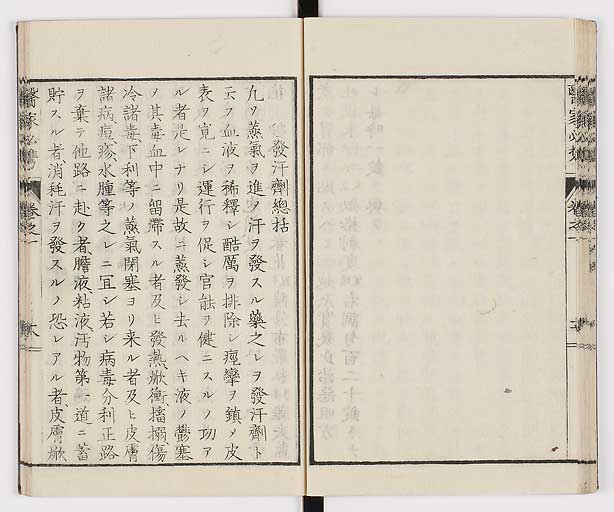 發汗劑總括
凡ソ蒸氣ヲ進メ汗ヲ發スル藥之レヲ發汗劑ト
云フ血液ヲ稀釋シ酷厲ヲ排除シ痙攣ヲ鎮メ皮
表ヲ寛ニシ運行ヲ促シ官能ヲ健ニスルノ功ア
ル者是レナリ是故ニ蒸發シ去ルヘキ液ノ鬱塞
ノ其毒血中ニ留滞スル者及ヒ發熱焮衝搐搦傷
冷諸毒下利等ノ蒸氣閉塞ヨリ来ル者及ヒ皮膚
諸病痘疹水腫等之レニ冝シ若シ病毒分利正路
ヲ棄テ他路ニ赴ク者膽液粘液汚物第一道ニ蓄
貯スル者消耗汗ヲ發スルノ恐レアル者皮膚焮
醫家必携
卷之一